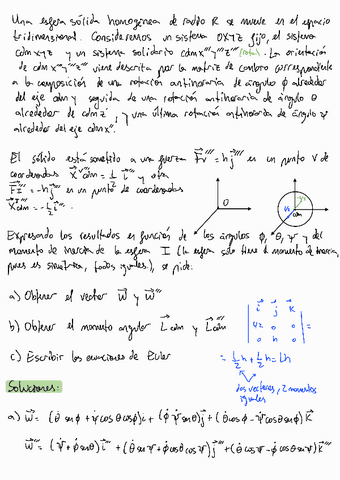 Una esfera sólida homogénea de radio R se mueve en el espacio
tridimensional. Consideremos un sistema OXYZ fijo, el sistema
cdm xyz y un sistema solidario cdm x'''y'''z''' (rota). La orientación
de cdm x'''y'''z''' viene descrita por la matriz de cambio correspondiente
a la composición de una rotación antihoraria de ángulo φ alrededor
del eje cdm y seguida de una rotación antihoraria de ángulo θ
alrededor de cdm z', y una última rotación antihoraria de ángulo ψ
alrededor del eje cdm x''.
El sólido está sometido a una fuerza F⃗v''' = h j⃗''' en un punto V de
coordenadas X⃗v'''cdm = 1/2 i⃗''' y otra
F⃗I''' = -h j⃗''' en un punto de coordenadas
X⃗I'''cdm = -L/2 i⃗'''.
O
Expresando los resultados en función de los ángulos φ, θ, ψ y del
momento de inercia de la esfera I (la esfera solo tiene 1 momento de inercia,
pues es simétrica, todos iguales), se pide:
a) Obtener el vector w⃗ y w⃗'''
b) Obtener el momento angular L⃗cdm y L⃗cdm'''
c) Escribir las ecuaciones de Euler
i⃗ j⃗ k⃗
1/2 0 0 =
0 h 0
= L/2 h + L/2 h = Lh
dos vectores, 2 momentos
iguales
Soluciones:
a) w⃗ = (θ̇ sen φ + ψ̇ cos θ cos φ) i⃗ + (φ̇ + ψ̇ sen θ) j⃗ + (θ̇ cos φ - ψ̇ cos θ sen φ) k⃗
w⃗''' = (ψ̇ + φ̇ sen θ) i⃗''' + (θ̇ sen ψ + φ̇ cos θ cos ψ) j⃗''' + (θ̇ cos ψ - φ̇ cos θ sen ψ) k⃗'''